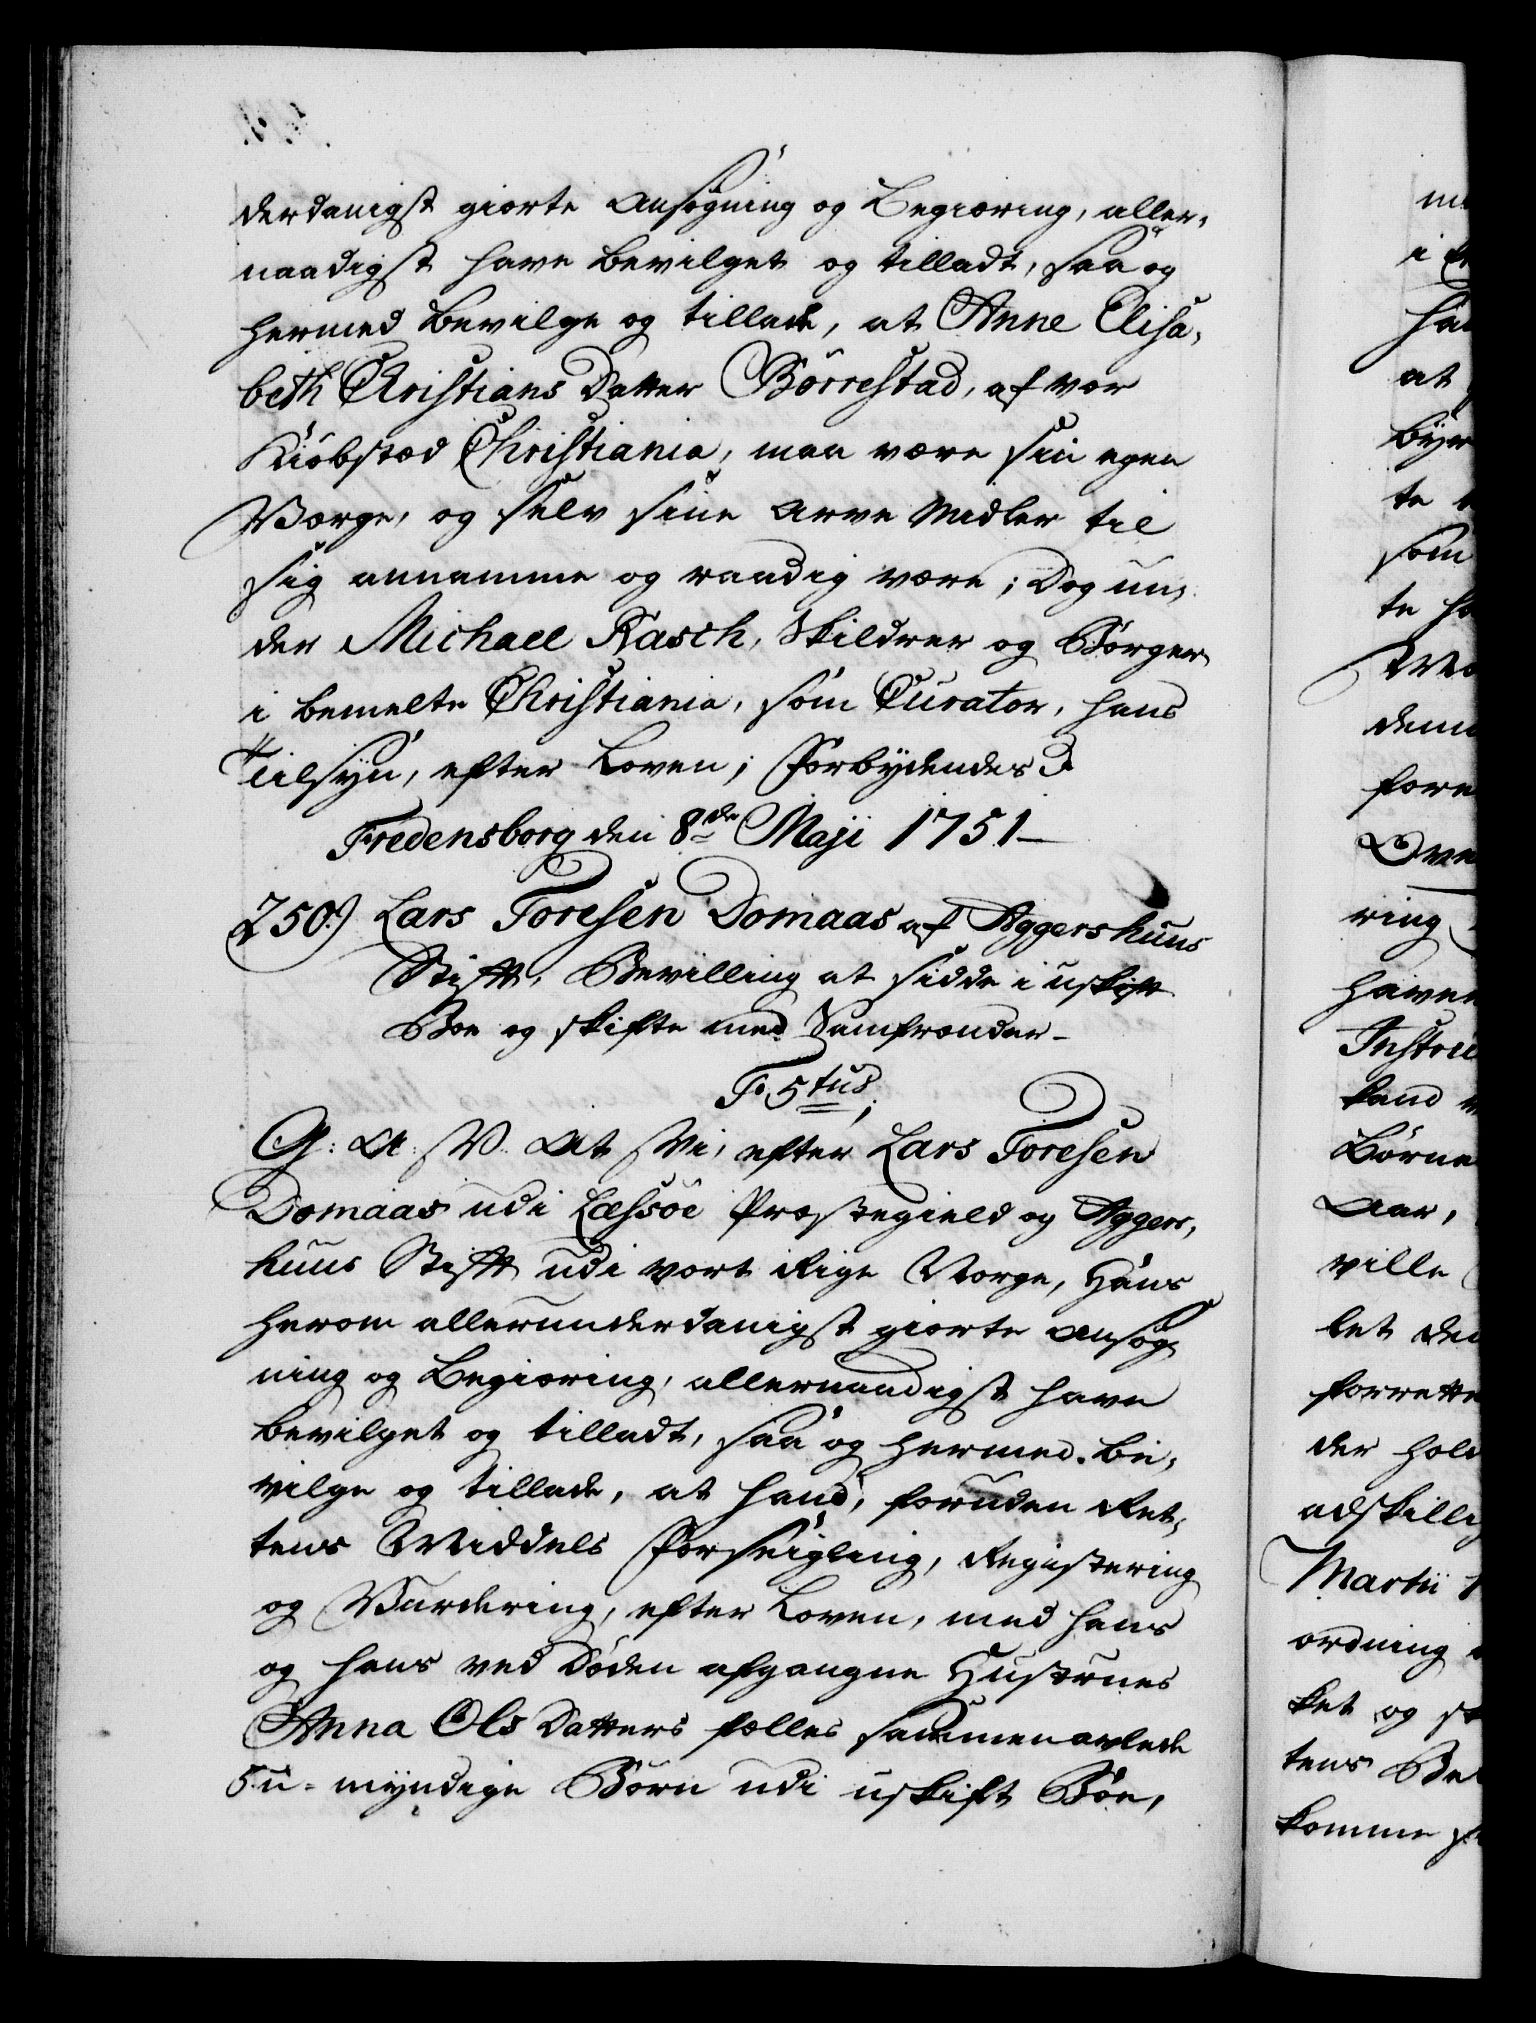 derdanigst giorte Ansøgning og Begiæring, aller,
naadigst have bevilget og tilladt, saa og
hermed bevilge og tillade, at Anne Elisa,
beth Christians Datter Börrestad, af vor
Kiøbstæd Christiania, maa være sin egen
Værge, og selv sine Arve Midler til
sig annamme og raadig være; Dog un,
der Michael Rasch, Skildrer og Borger
i bemelte Christiania, som Curator, hans
Tilsyn, efter Loven; Forbydendes &
Fredensborg den 8de Maji 1751
250.) Lars Toresen Domaas af Aggershuus
Stift, Bevilling at sidde i uskift
Boe og skifte med Samfrænder
F. 5tus,
G: A: V. At Vi, efter Lars Toresen
Domaas udi Læssöe Præstegield og Aggers,
huus Stift udi vort Rige Norge, Hans
herom allerunderdanigst giorte Ansøg
ning og Begiæring, allernaadigst have
bevilget og tilladt, saa og hermed be,
vilge og tillade, at hand, foruden Ret,
tens Middels Forseigling, Registering
og Vurdering, efter Loven, med hans
og hans ved Døden afgangne Hustrues
Anna Ols Datters fælles sammenavlede
5 u-myndige Børn udi uskift Boe,